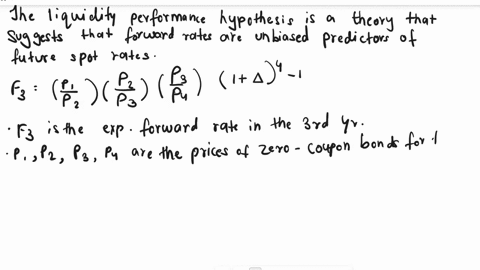 The liquidity performance hypothesis is a theory that
suggests that forward rates are unbiased predictors of
future spot rates.
F₃ : (P₁/P₂) (P₂/P₃) (P₃/P₄) (1+Δ)⁴ -1
· F₃ is the exp. forward rate in the 3rd yr.
· P₁, P₂, P₃, P₄ are the prices of zero-coupon bonds for 1